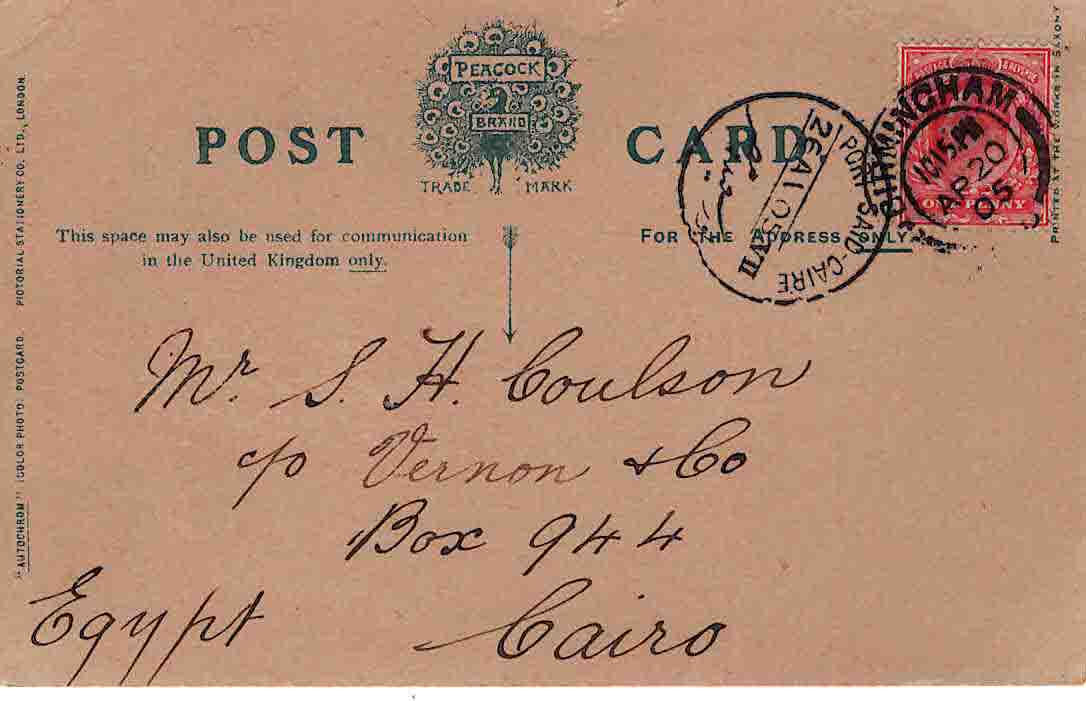 PEACOCK
BRAND
TRADE MARK
POST CARD
This space may also be used for communication
in the United Kingdom only.
FOR THE ADDRESS ONLY.
ONE PENNY
BIRMINGHAM
1015 PM
AP 20
05
PORT SAID-CAIRE
26 A 1 05 VII
Mr. S. H. Coulson
c/o Vernon & Co
Box 944
Cairo
Egypt
"AUTOCHROM" (COLOR PHOTO) POSTCARD. PICTORIAL STATIONERY CO. LTD., LONDON.
PRINTED AT THE WORKS IN SAXONY